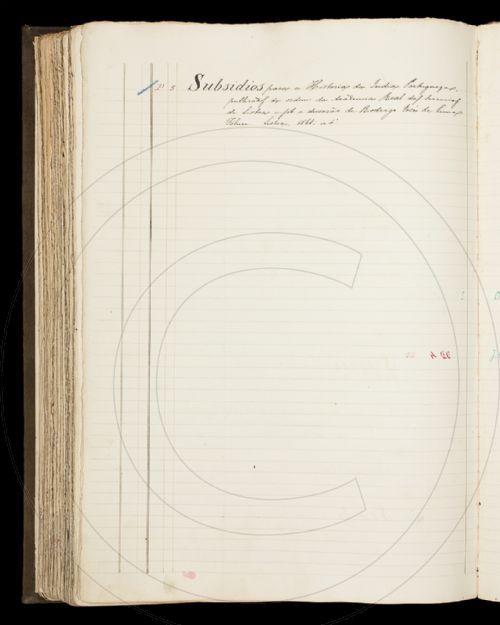 21 5 Subsidios para a Historia da India Portugueza,
publicados de ordem da Academia Real das Sciencias
de Lisboa e sob a direcção de Rodrigo José de Lima
Felner Lisboa, 1868. in 4º